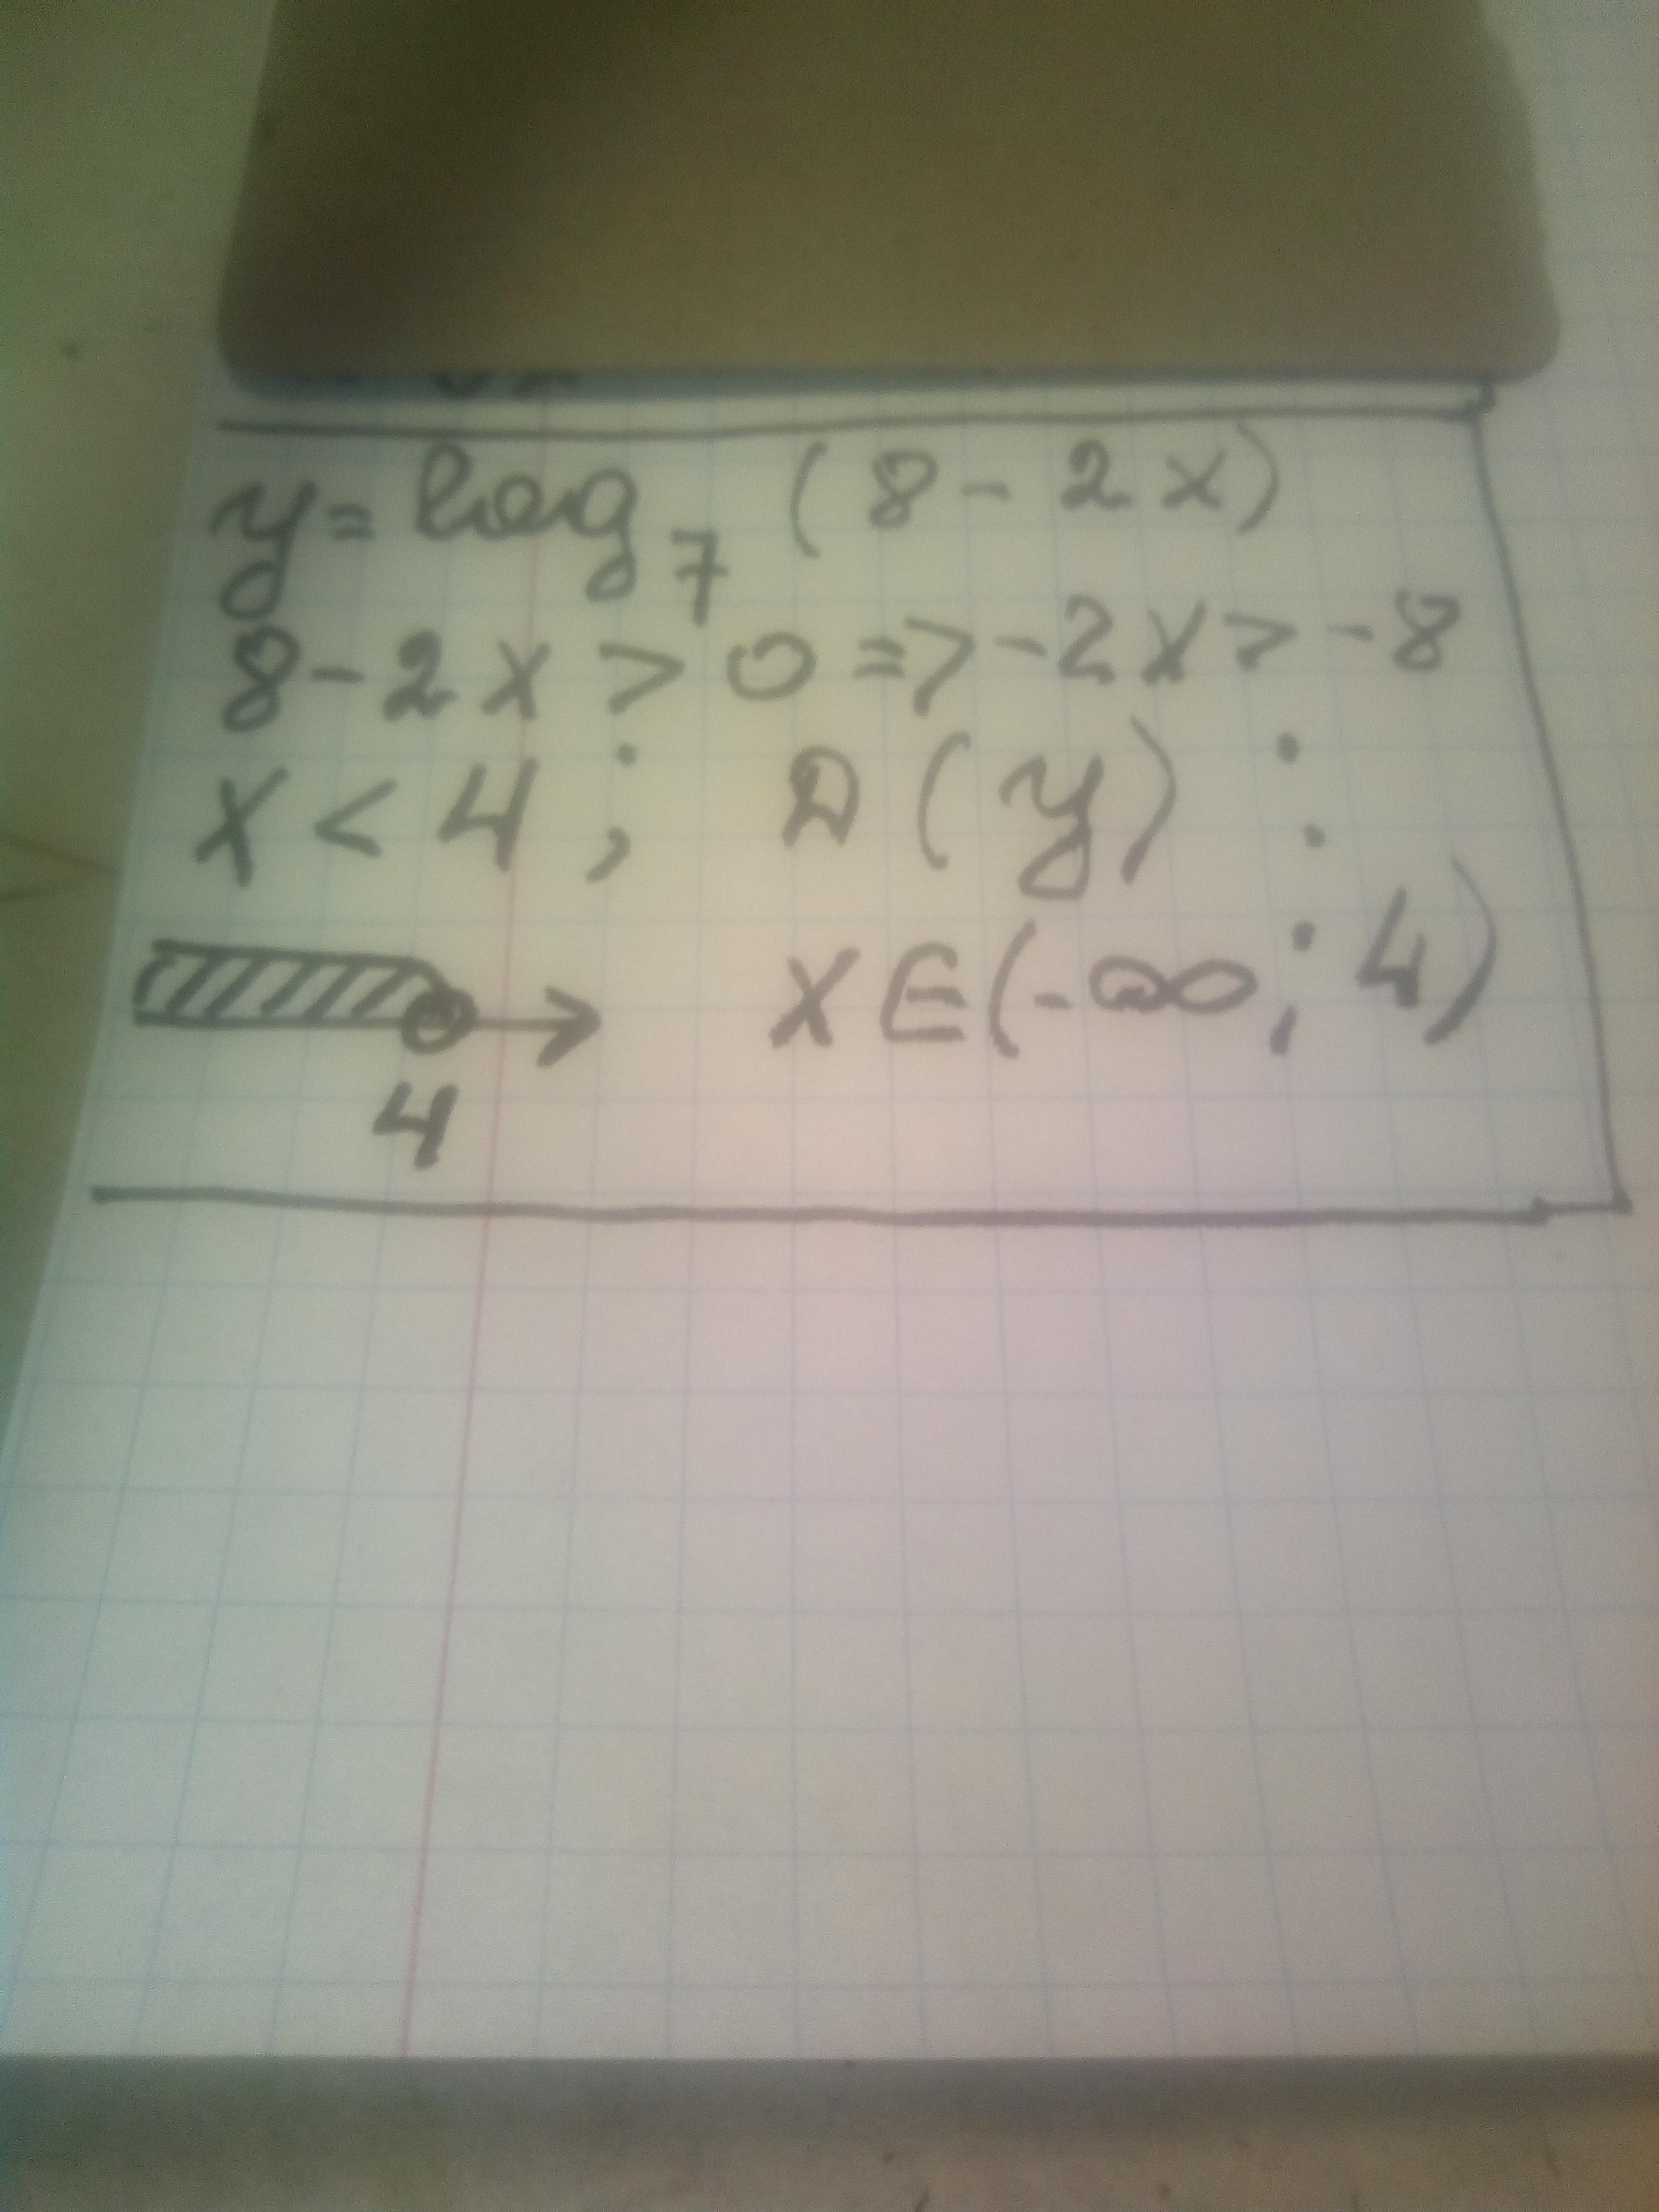 y = log₇ (8 - 2x)
8 - 2x > 0 => -2x > -8
x < 4 ; D(y) :
x ∈ (-∞ ; 4)
4